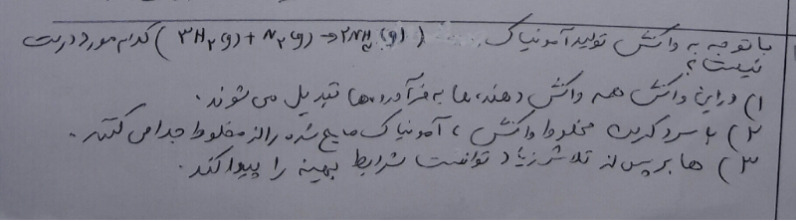 با توجه به واکنش تولید آمونیاک (3H₂(g) + N₂(g) → 2NH₃(g)) کدام مورد درست
نیست؟
۱) در این واکنش همه واکنش دهنده ها به فرآورده ها تبدیل می شوند.
۲) با سرد کردن مخلوط واکنش، آمونیاک مایع شده را از مخلوط جدا می کنند.
۳) هابر پس از تلاش زیاد توانست شرایط بهینه را پیدا کند.